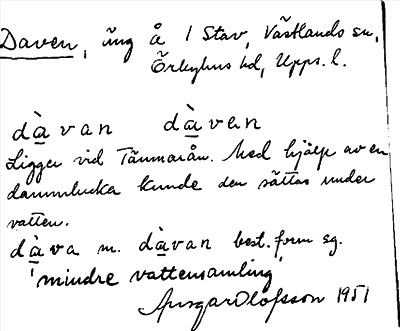 Daven, äng å / Stav, Västlands sn,
Örbyhus hd, Upps. l.
dàvan dàven
Ligger vid Tämnarån. Med hjälp av en
dammlucka kunde den sättas under
vatten.
dàva m. dàvan best. form sg.
'mindre vattensamling'
Ansgar Olofsson 1951